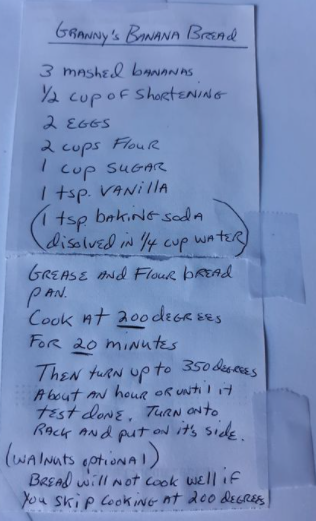 Granny's Banana Bread
3 mashed bananas
1/2 cup of shortening
2 eggs
2 cups flour
1 cup sugar
1 tsp. vanilla
(1 tsp baking soda
dissolved in 1/4 cup water)
Grease and flour bread
pan.
Cook at 200 degrees
for 20 minutes
Then turn up to 350 degrees
About an hour or until it
test done. Turn onto
rack and put on it's side.
(walnuts optional)
Bread will not cook well if
you skip cooking at 200 degrees